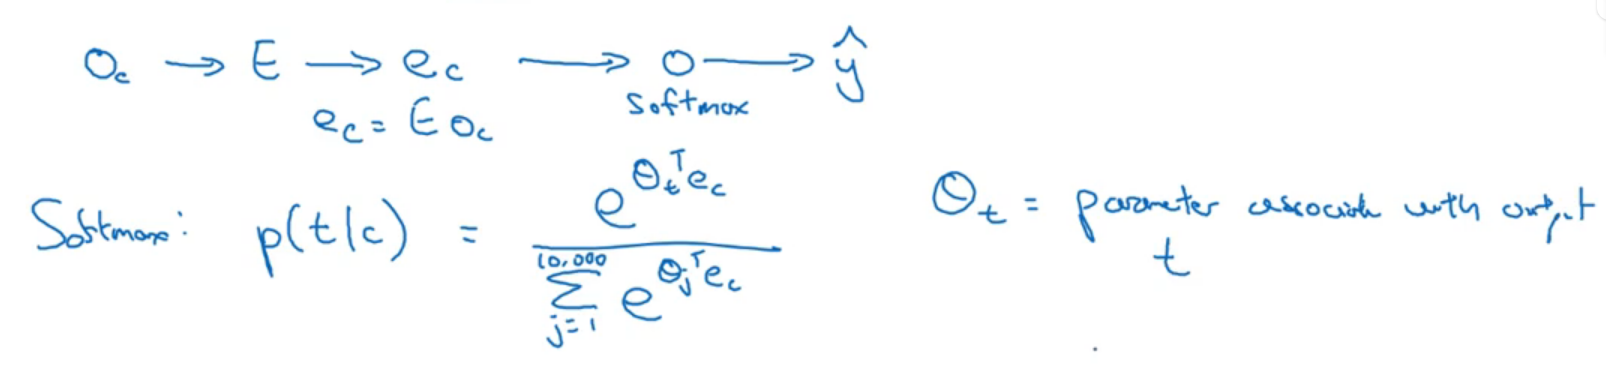 O_c → E → e_c → o → ŷ
Softmax
e_c = E o_c
Softmax: p(t|c) = e^{θ_t^T e_c} / Σ_{j=1}^{10,000} e^{θ_j^T e_c}
θ_t = parameter associate with output
t